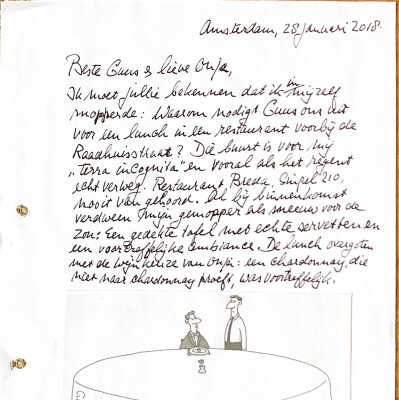 Amsterdam, 28 januari 2018.
Beste Guus & lieve Onja,
Ik moet jullie bekennen dat ik in mijzelf
mopperde: Waarom nodigt Guus ons uit
voor een lunch in een restaurant voorbij de
Raadhuisstraat? Die buurt is voor mij
"terra incognita" en vooral als het regent
echt ver weg. Restaurant Breda, Singel 210,
nooit van gehoord. Al bij binnenkomst
verdween mijn gemopper als sneeuw voor de
zon: Een gedekte tafel met echte servetten en
een voortreffelijke ambiance. De lunch overgoten
met de wijnkeuze van Onja: een chardonnay, die
niet naar chardonnay proeft, was voortreffelijk.